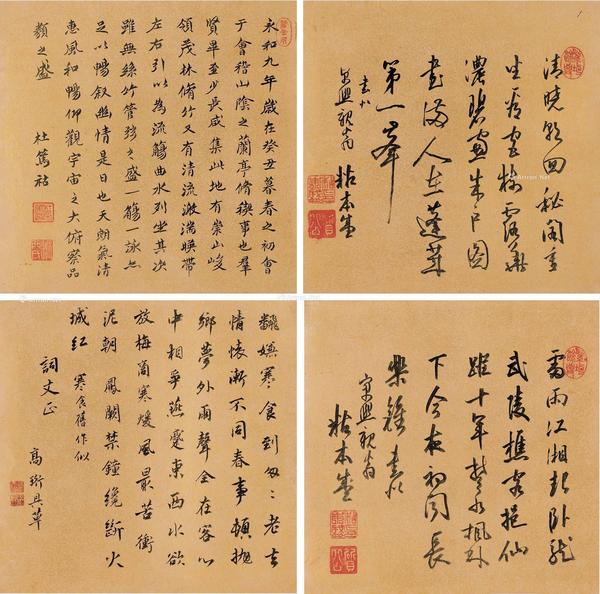 永和九年歲在癸丑暮春之初會
于會稽山陰之蘭亭脩禊事也羣
賢畢至少長咸集此地有崇山峻
領茂林脩竹又有清流激湍暎帶
左右引以為流觴曲水列坐其次
雖無絲竹管弦之盛一觴一詠亦
足以暢叙幽情是日也天朗氣清
惠風和暢仰觀宇宙之大俯察品
類之盛
杜篤祜
清曉回秘閣
坐看宮樹露華
濃碧窗朱戶圖
書滿人在蓬萊
第一峯
書似
宗興親翁
粘本盛
翻嫌寒食到匆々老去
情懷漸不同春事頓拋
鄉夢外雨聲全在客心
中相爭燕蹙東西水欲
放梅商寒煖風最苦衝
泥朝鳳闕禁鐘纔斷火
城紅 寒食舊作似
詞丈正
高珩具草
雷雨江湘起臥龍
武陵樵客仙
蹤十年楚水楓林
下今夜初聞長
樂鐘書似
宗興親翁
粘本盛